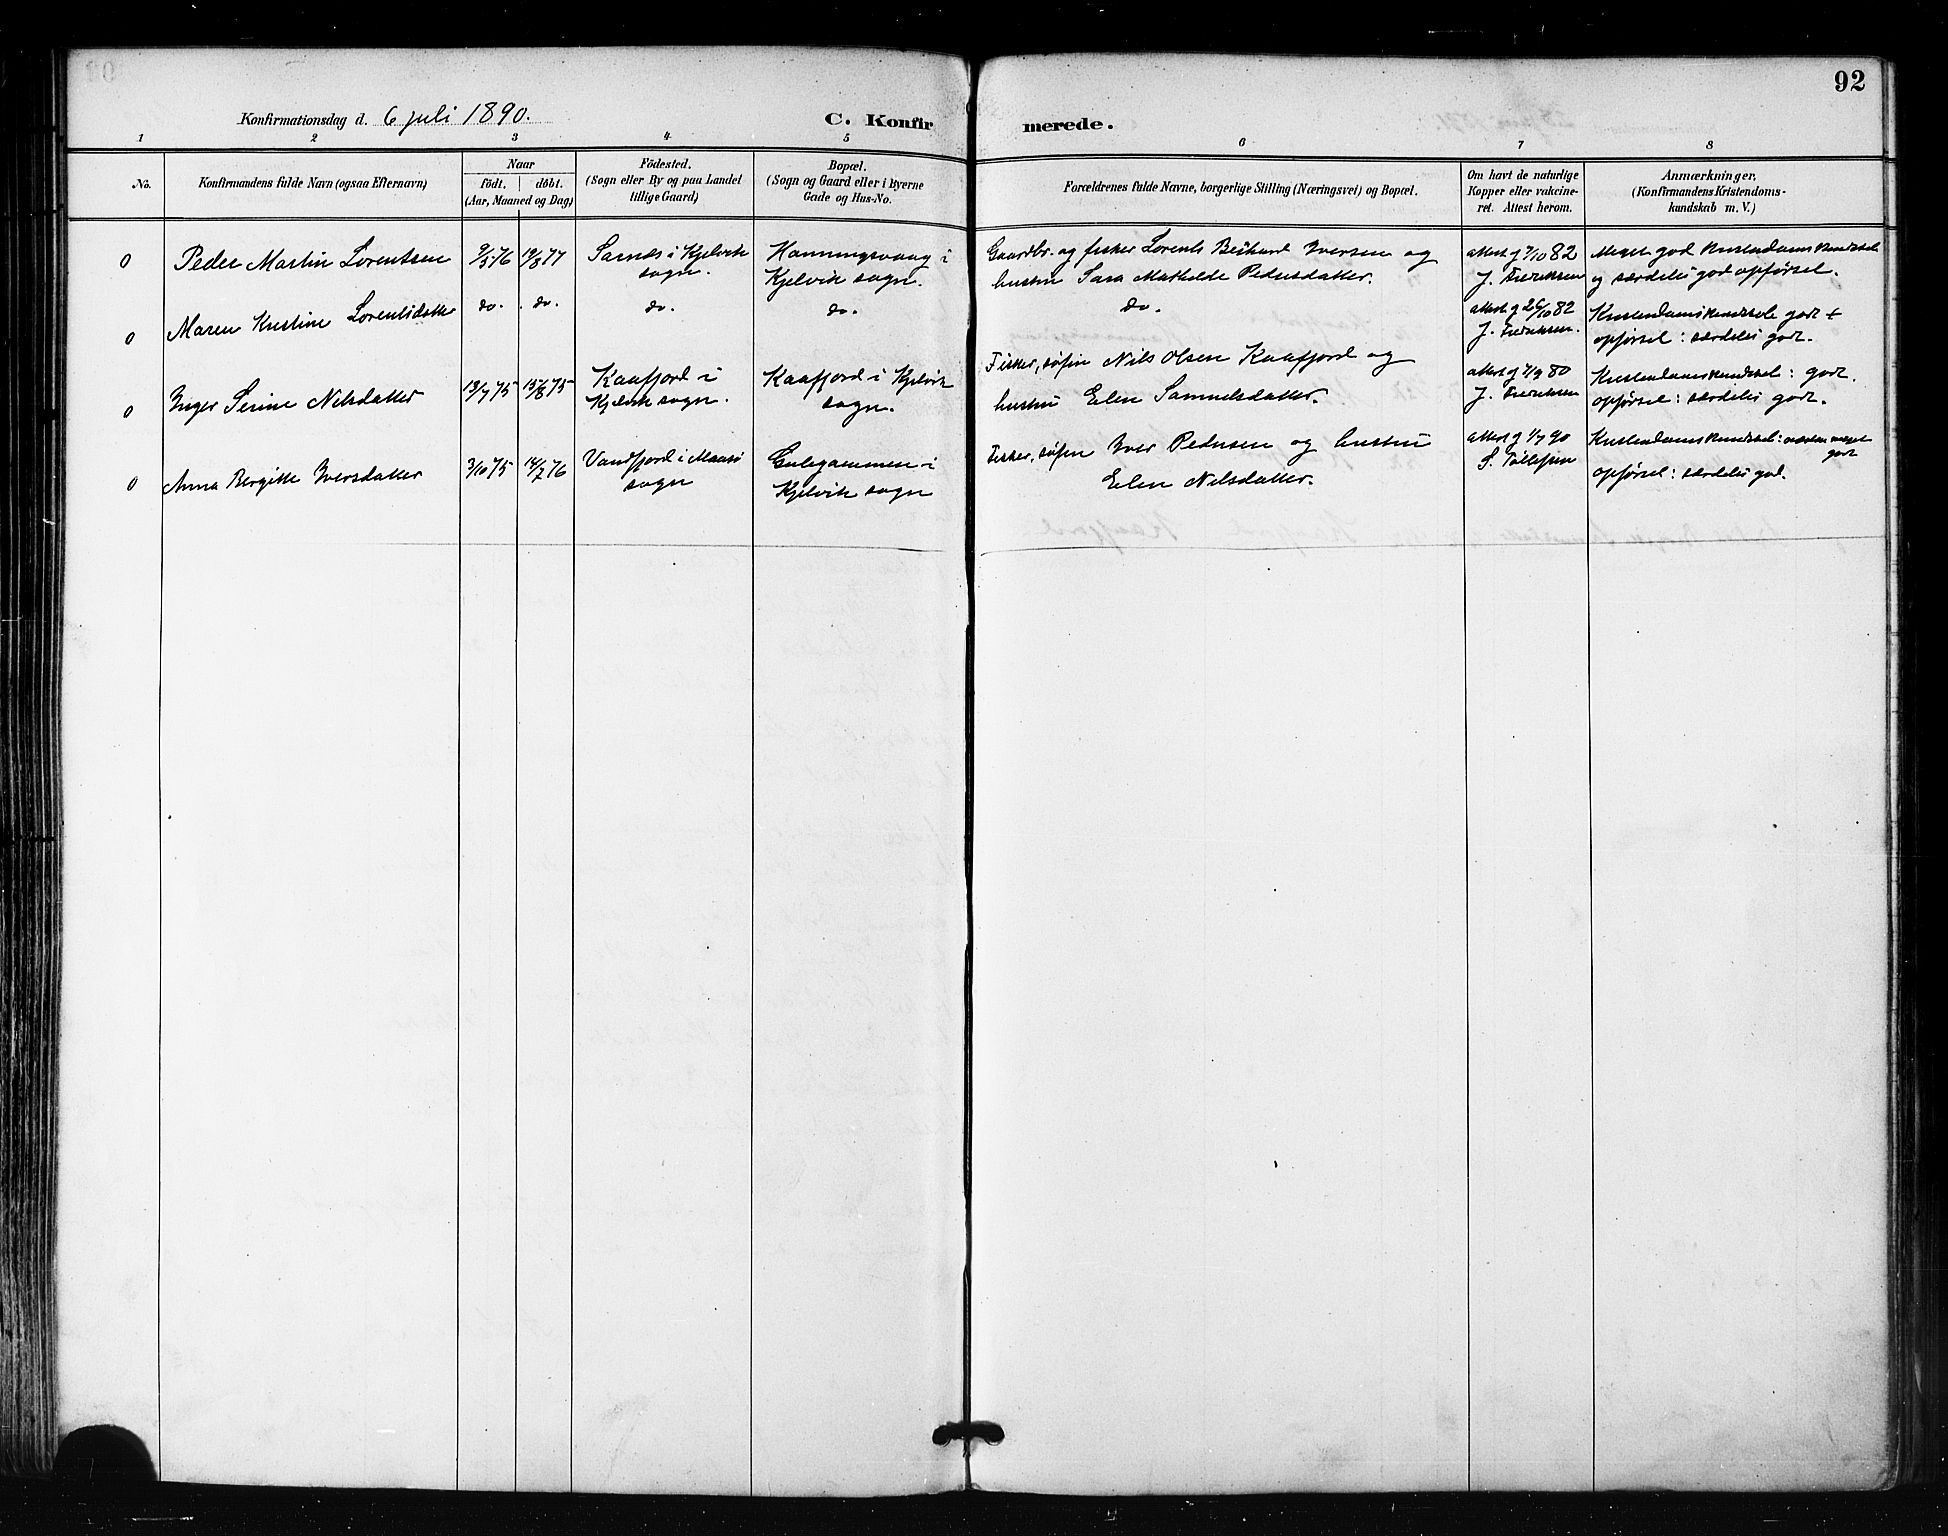 92
Konfirmationsdag d. 6 juli 1890.
C. Konfirmerede.
1 2 3 4 5 6 7 8
No.
Konfirmandens fulde Navn (ogsaa Efternavn)
Naar
födt. döbt.
(Aar, Maaned og Dag)
Födested.
(Sogn eller By og paa Landet
tillige Gaard)
Bopæl.
(Sogn og Gaard eller i Byerne
Gade og Hus-No.
Forældrenes fulde Navne, borgerlige Stilling (Næringsvei) og Bopæl.
Om havt de naturlige
Kopper eller vakcine-
ret. Attest herom.
Anmærkninger,
(Konfirmandens Kristendoms-
kundskab m. V.)
0 Peder Martin Lorentsen
9/5 76 19/8 77
Sarnes i Kjelvik
sogn.
Honningsvaag i
Kjelvik sogn.
Gaardbr. og fisker Lorents Iversen og
hustru Sara Mathilde Pedersdatter.
attest af 7/10 82
J. Fredriksen
Meget god Kristendomskundskab
og særdeles god opførsel.
0 Maren Kristine Lorentsdatter
do. do. do. do. do.
attest af 26/10 82
J. Fredriksen.
Kristendomskundskab godt +
opførsel: særdeles godt.
0 Inger Serine Nilsdatter
13/7 75 15/8 75
Kaafjord i
Kjelvik sogn.
Kaafjord i Kjelvik
sogn.
Fisker, søfin Nils Olsen Kaafjord og
hustru Elen Samuelsdatter.
attest af 7/9 80
J. Fredriksen
Kristendomskundskab: godt.
opførsel: særdeles godt.
0 Anna Bergitte Iversdatter
3/10 75 14/7 76
Vandfjord i Maasø
sogn
Gulegammen i
Kjelvik sogn
Fisker, søfin Iver Pedersen og hustru
Elen Nilsdatter.
attest af 1/7 90
S. Tollefsen
Kristendomskundskab: næsten meget
godt
opførsel: særdeles god.